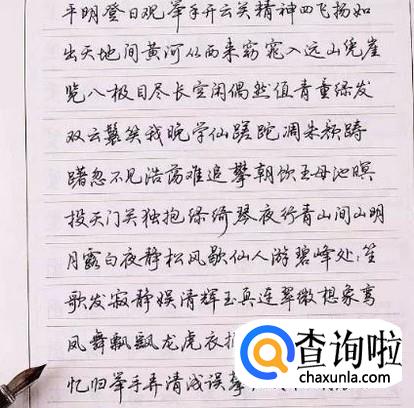 平明登日观举手开云关精神四飞扬如
出天地间黄河从西来窈窕入远山凭崖
览八极目尽长空闲偶然值青童绿发
双云鬟笑我晚学仙蹉跎凋朱颜踌
躇忽不见浩荡难追攀朝饮王母池暝
投天门关独抱绿绮琴夜行青山间山明
月露白夜静松风歇仙人游碧峰处处笙
歌发寂静娱清辉玉真连翠微想象鸾
凤舞飘飘龙虎衣
忆归举手弄清浅误攀
查询啦
chaxunla.com